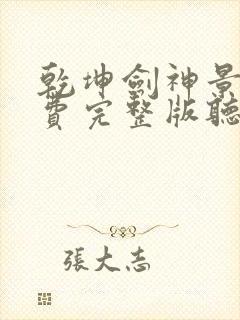 乾坤劍神景
費完整版聽
張大志